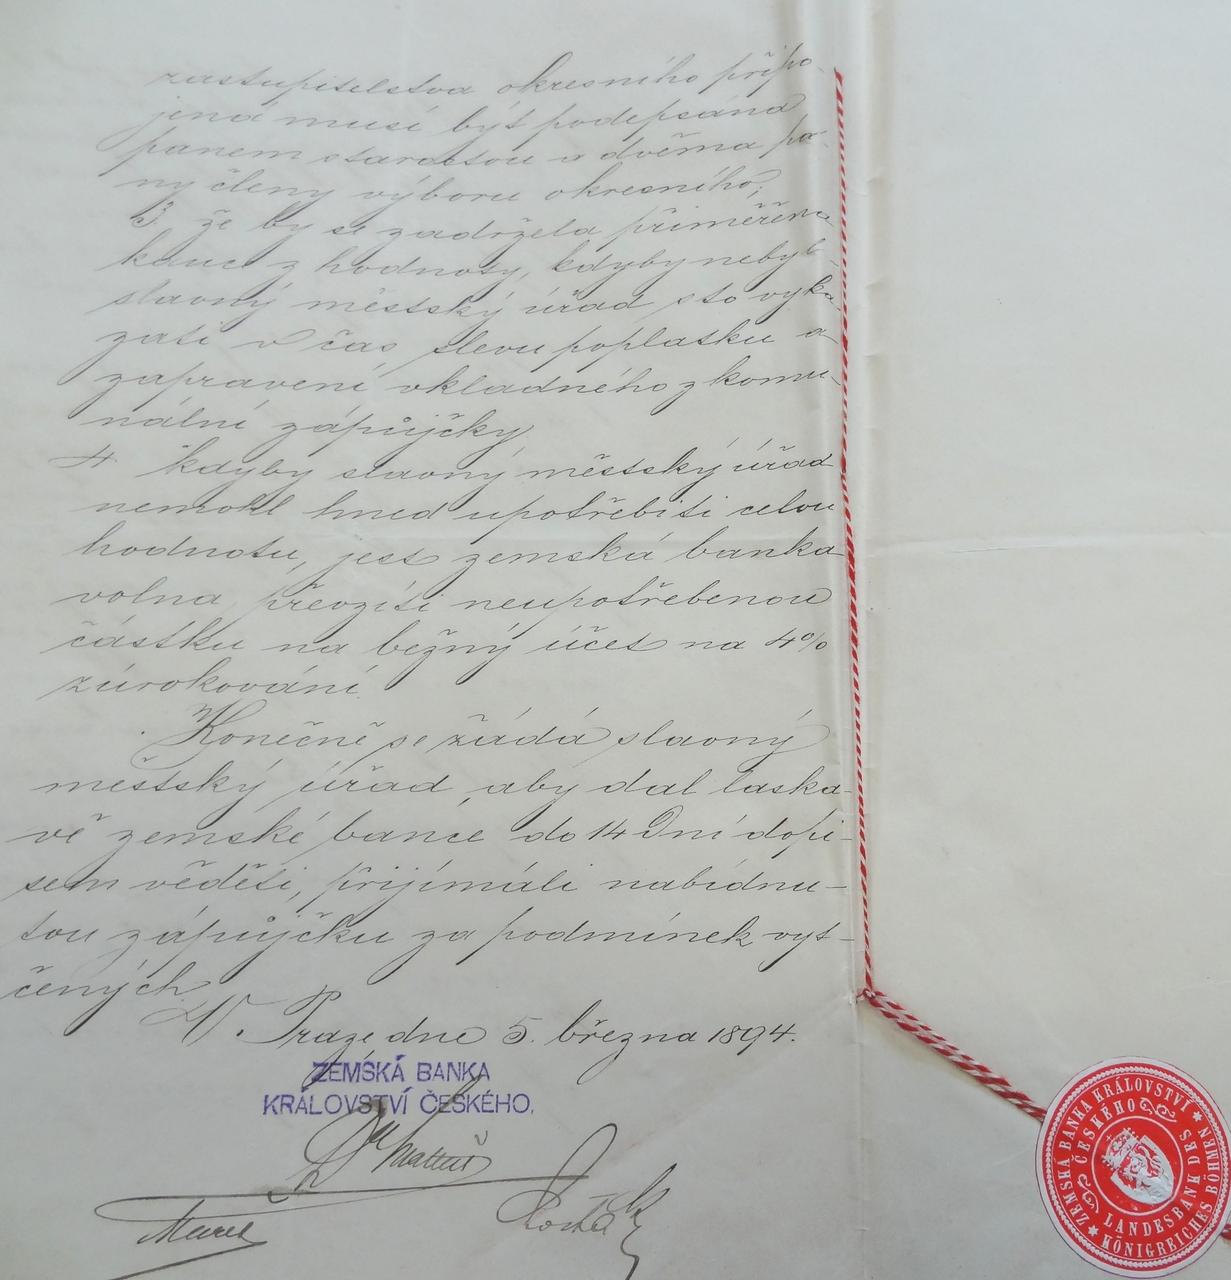 zastupitelstva okresního připo-
jená musí být podepsána
panem starostou a dvěma pá-
ny členy výboru okresního;
3. že by se zadržela přiměřená
kauce z hodnoty, kdyby nebyl
slavný městský úřad sto vyká-
zati v čas slevu poplatku a
zapravení vkladného z komu-
nální zápůjčky
4. kdyby slavný městský úřad
nemohl hned upotřebiti celou
hodnotu, jest zemská banka
volna, převzíti neupotřebenou
částku na běžný účet na 4%
zúrokování.
Konečně se žádá slavný
městský úřad, aby dal laska-
vě zemské bance do 14 dní dopi-
sem věděti, přijímáli nabídnu-
tou zápůjčku za podmínek vyt-
čených.
V Praze dne 5. března 1894.
ZEMSKÁ BANKA
KRÁLOVSTVÍ ČESKÉHO.
Dr Mattuš
ZEMSKÁ BANKA KRÁLOVSTVÍ
ČESKÉHO
LANDESBANK DES
KÖNIGREICHES BÖHMEN